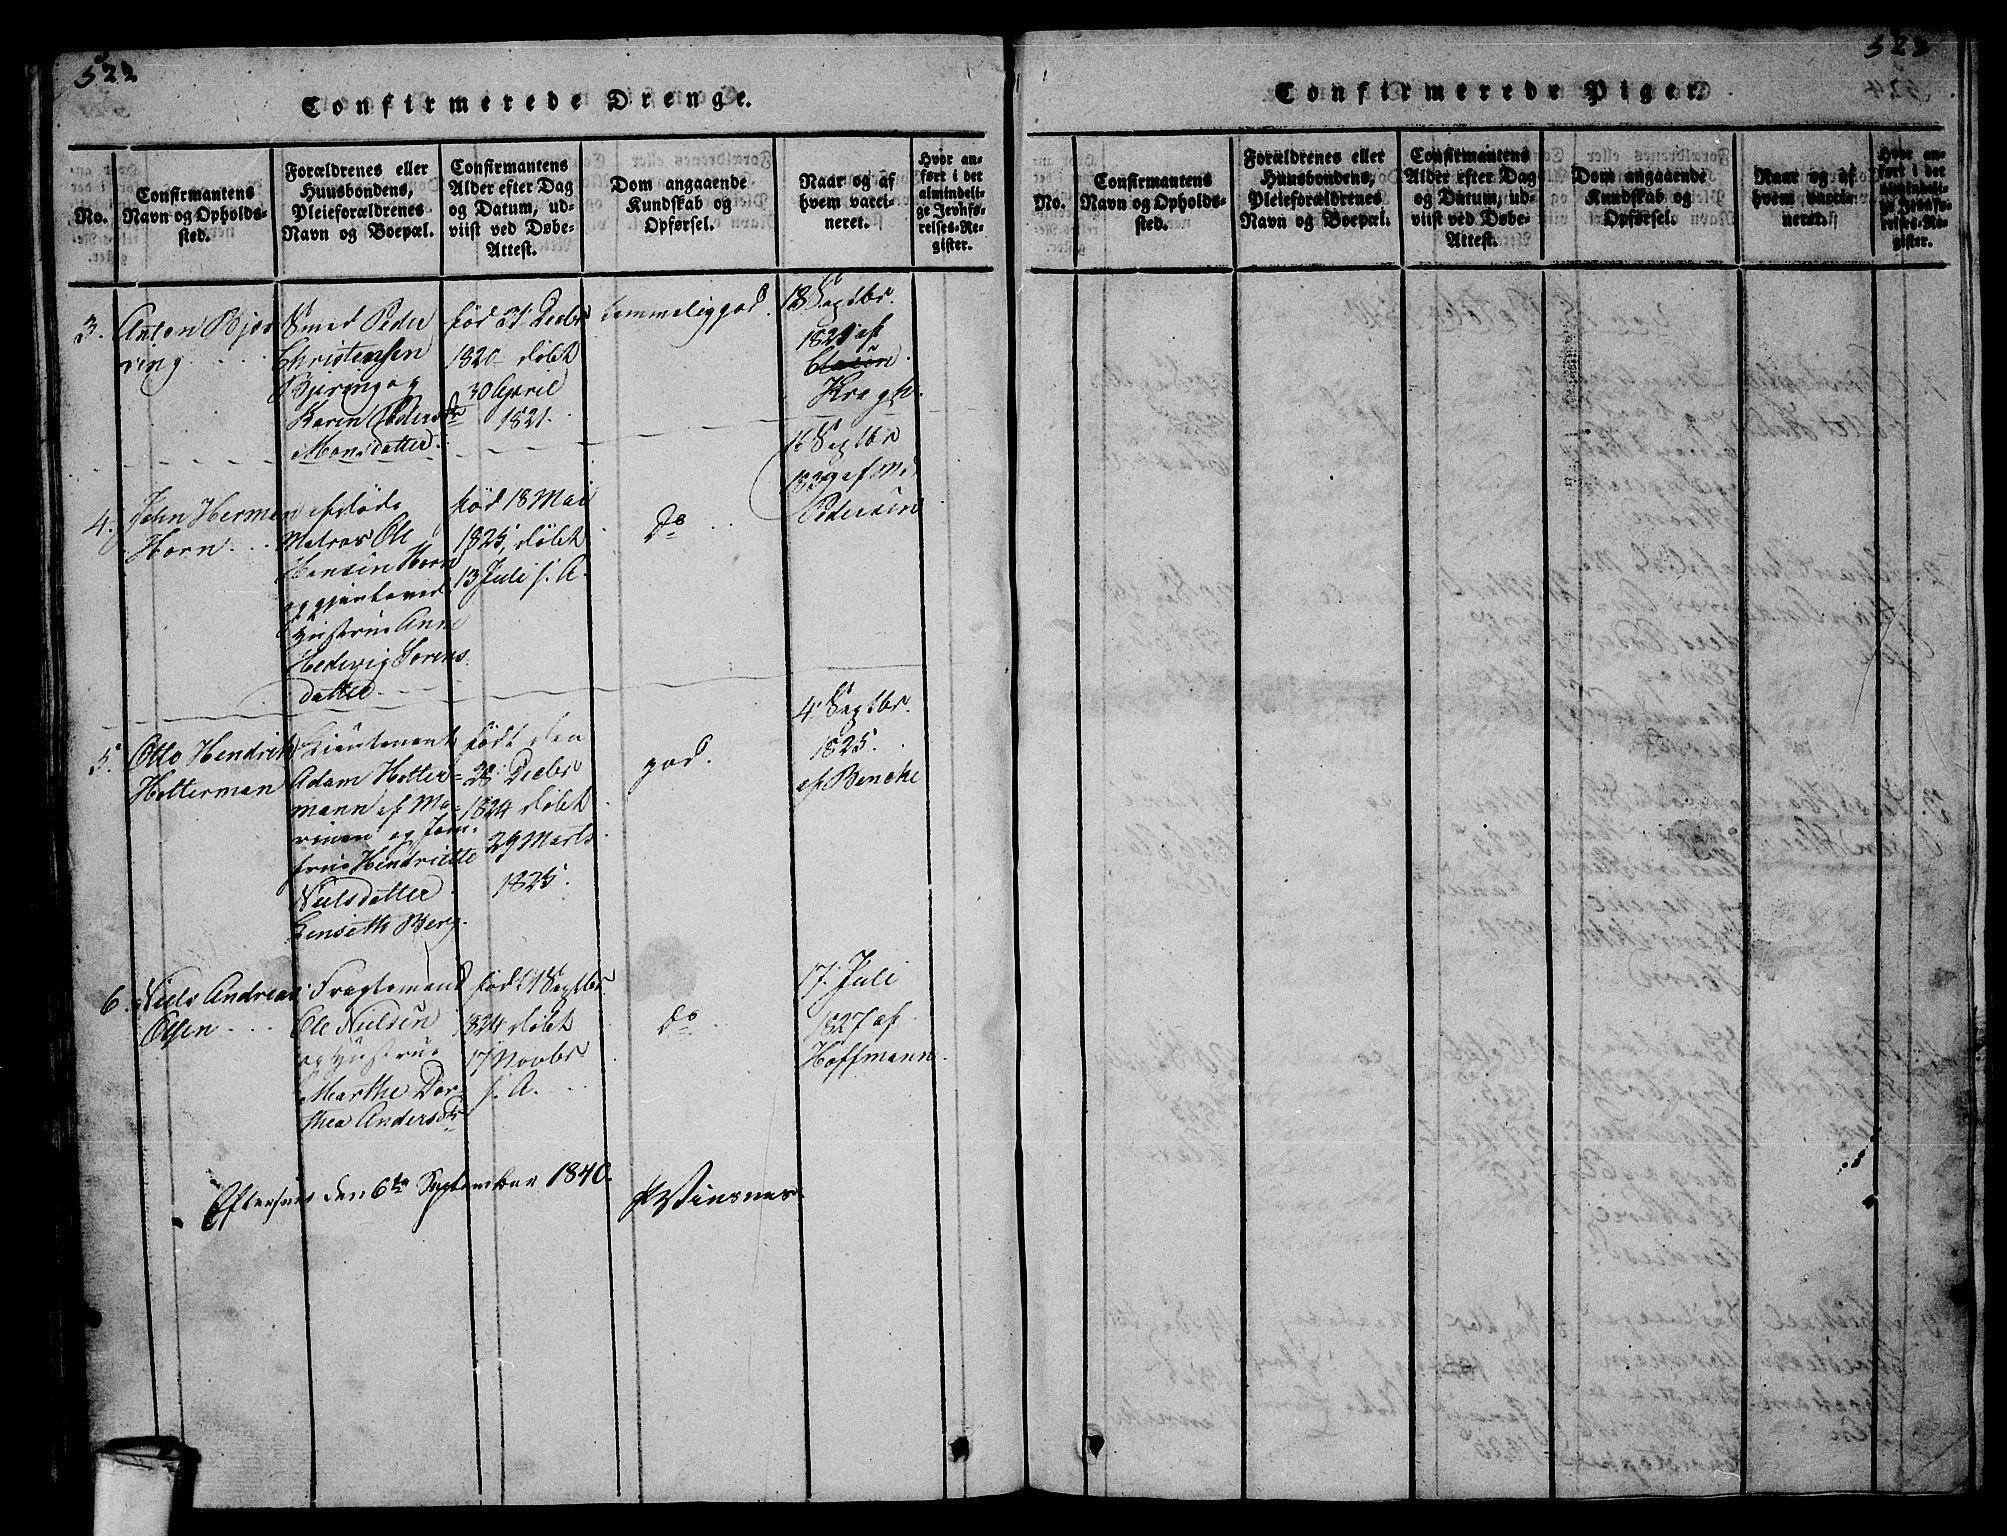 522
Confirmerede Drenge.
No.
Confirmantens
Navn og Opholds-
sted.
Forældrenes eller
Huusbondens,
Pleieforældrenes
Navn og Boepæl.
Confirmantens
Alder efter Dag
og Datum, ud-
viist ved Døbe-
Attest.
Dom angaaende
Kundskab og
Opførsel.
Naar og af
hvem vacci-
neret.
Hvor an-
ført i det
almindeli-
ge Jevnfø-
relses-Re-
gister.
3.
Anton Bjer
ring
Smed Peder
Christensen
Bjering og
Karen Peders
Monsdatter.
født 31 Decbr
1820 døbt
30 April
1821.
temmelig god.
18 Septbr.
1821 af
Krogh.
4.
John Herman
Horn
afdøde
Matros Ole
Hansen Horn
og gjenlevend
Hustrue Anne
Hedevig Sørens
datter
født 18 Mai
1825, døbt
13 Juli s. A.
Do
16 Septbr
1839 af M.
Pedersen
5.
Otto Hendrich
Holterman
Lieutenant
Adam Holter-
mann af Ma-
rinen og Jom-
frue Hendriette
Nielsdatter
Linseth Berg.
født den
28 Decbr
1824 døbt
29 Marts
1825.
god.
4 Septbr.
1825.
af Benche
6.
Niels Andreas
Olsen
Fragtemand
Ole Nielsen
og Hustrue
Marthe Dor-
thea Andersdr
født 1 Septbr
1824 døbt
17 Novbr
s. A.
Do
17 Juli
1827 af
Hoffmann.
Efterseet den 6te September 1840.
PWinsnes.
523
Confirmerede Piger.
No.
Confirmantens
Navn og Opholds-
sted.
Forældrenes eller
Huusbondens,
Pleieforældrenes
Navn og Boepæl.
Confirmantens
Alder efter Dag
og Datum, ud-
viist ved Døbe-
Attest.
Dom angaaende
Kundskab og
Opførsel.
Naar og af
hvem vacci-
neret.
Hvor an-
ført i det
almindeli-
ge Jevnfø-
relses-Re-
gister.